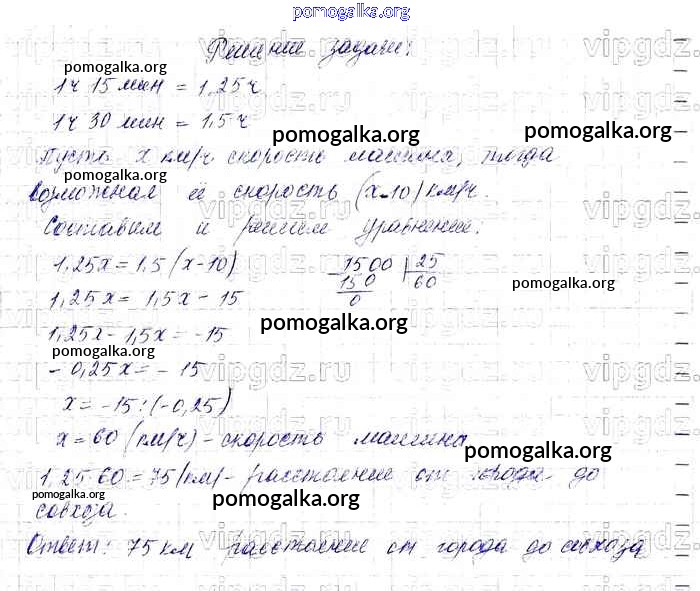 pomogalka.org
Решение задачи:
vipgdz.ru vipgdz
pomogalka.org
1ч 15 мин = 1,25ч
1ч 30 мин = 1,5ч
pomogalka.org
pomogalka.org
Пусть x км/ч скорость машины, тогда
возможная её скорость (x-10) км/ч.
Составим и решим уравнение:
vipgdz.ru vipgdz
1,25x = 1,5 (x-10)
1500 | 25
150 60
0
pomogalka.org
1,25x = 1,5x - 15
pomogalka.org
1,25x - 1,5x = -15
pomogalka.org
- 0,25x = - 15
vipgdz.ru vipgdz
x = -15 : (-0,25)
x = 60 (км/ч) - скорость машины
pomogalka.org
1,25 60 = 75 (км) - расстояние от города до
pomogalka.org
pomogalka.org
совхоза.
Ответ: 75 км расстояние от города до совхоза
vipgdz.ru vipgdz